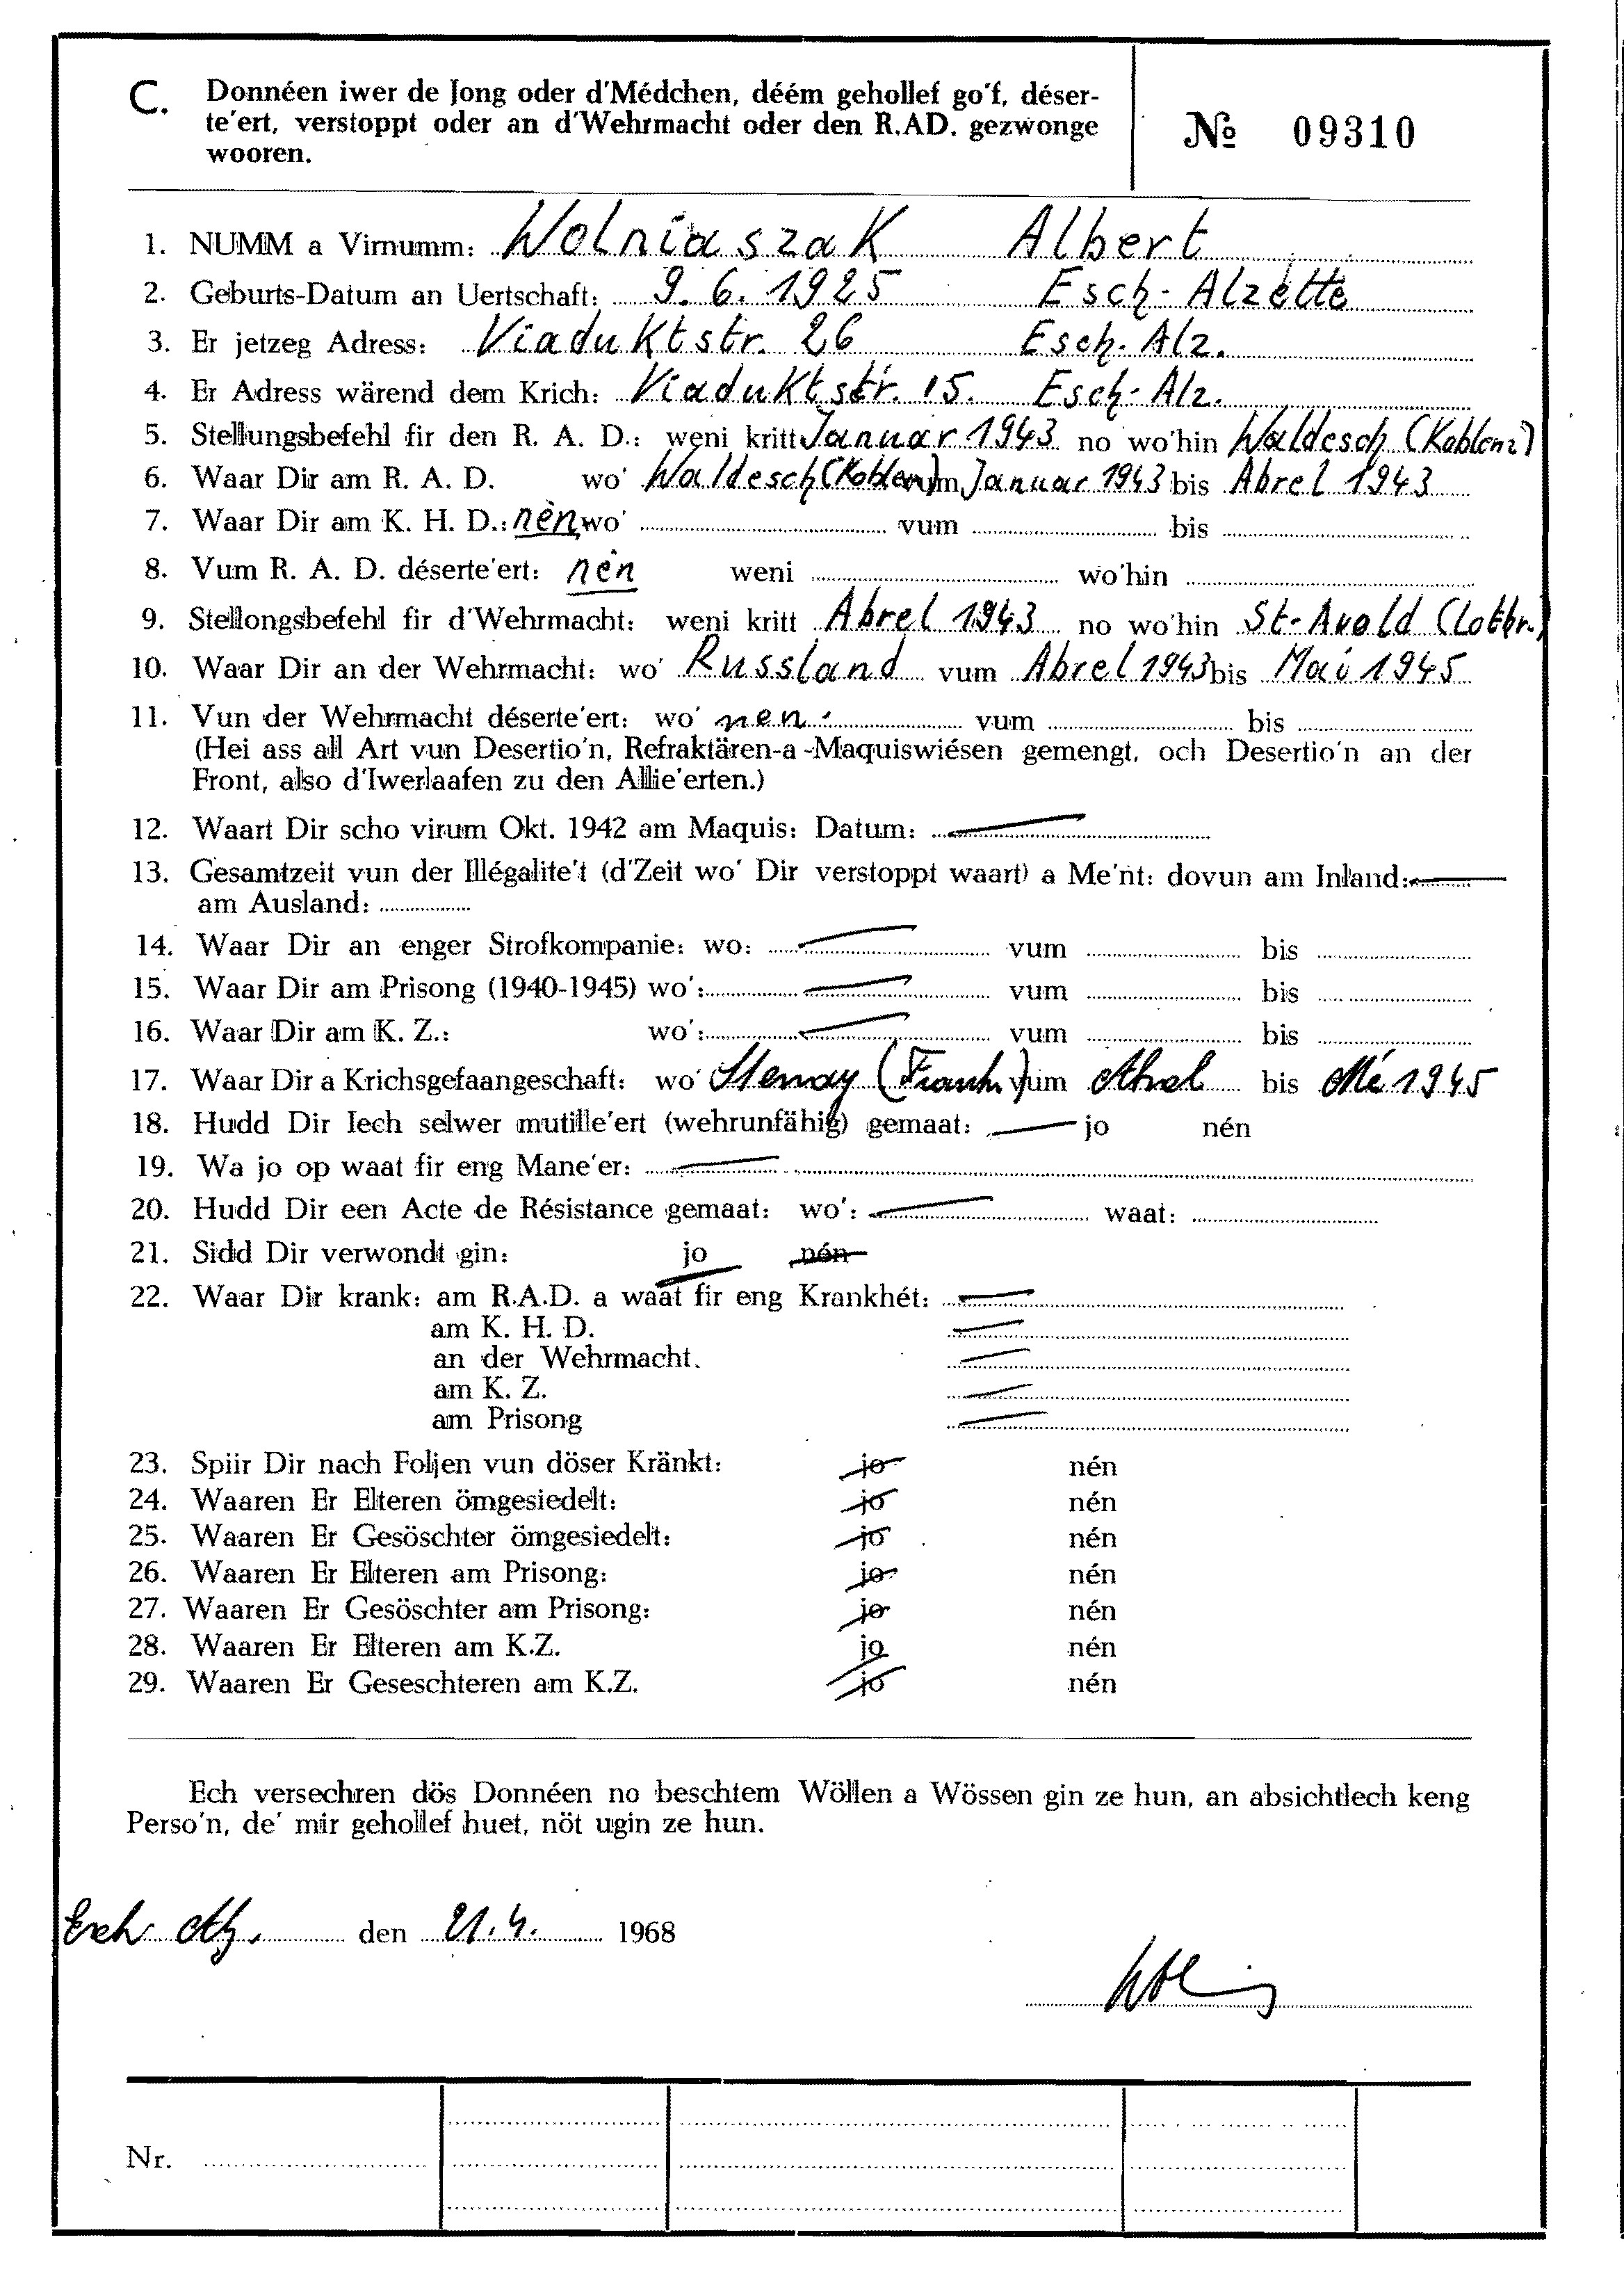 C. Donnéen iwer de Jong oder d'Médchen, déém gehollef go'f, déser-
te'ert, verstoppt oder an d'Wehrmacht oder den R.AD. gezwonge
wooren.
№ 09310
1. NUMM a Virnumm: Wolniaszak Albert
2. Geburts-Datum an Uertschaft: 9. 6. 1925 Esch-Alzette
3. Er jetzeg Adress: Viaduktstr. 26 Esch-Alz.
4. Er Adress wärend dem Krich: Viaduktstr. 15. Esch-Alz.
5. Stellungsbefehl fir den R. A. D.: weni kritt Januar 1943 no wo'hin Waldesch (Koblenz)
6. Waar Dir am R. A. D. wo' Waldesch (Koblenz) vum Januar 1943 bis Abrel 1943
7. Waar Dir am K. H. D.: nèn wo' vum bis
8. Vum R. A. D. déserte'ert: nèn weni wo'hin
9. Stellongsbefehl fir d'Wehrmacht: weni kritt Abrel 1943 no wo'hin St-Avold (Lothr.)
10. Waar Dir an der Wehrmacht: wo' Russland vum Abrel 1943 bis Mai 1945
11. Vun der Wehrmacht déserte'ert: wo' nen. vum bis
(Hei ass all Art vun Desertio'n, Refraktären-a-Maquiswiésen gemengt, och Desertio'n an der
Front, also d'Iwerlaafen zu den Allie'erten.)
12. Waart Dir scho virum Okt. 1942 am Maquis: Datum:
13. Gesamtzeit vun der Illégalite't (d'Zeit wo' Dir verstoppt waart) a Me'nt: dovun am Inland:
am Ausland:
14. Waar Dir an enger Strofkompanie: wo: vum bis
15. Waar Dir am Prisong (1940-1945) wo': vum bis
16. Waar Dir am K. Z.: wo': vum bis
17. Waar Dir a Krichsgefaangeschaft: wo' Stenay (Frankr.) vum Abrel bis Mé 1945
18. Hudd Dir Iech selwer mutille'ert (wehrunfähig) gemaat: jo nén
19. Wa jo op waat fir eng Mane'er:
20. Hudd Dir een Acte de Résistance gemaat: wo': waat:
21. Sidd Dir verwondt gin: jo nén
22. Waar Dir krank: am R.A.D. a waat fir eng Krankhét:
am K. H. D.
an der Wehrmacht.
am K. Z.
am Prisong
23. Spiir Dir nach Foljen vun döser Kränkt: jo nén
24. Waaren Er Elteren ömgesiedelt: jo nén
25. Waaren Er Gesöschter ömgesiedelt: jo nén
26. Waaren Er Elteren am Prisong: jo nén
27. Waaren Er Gesöschter am Prisong: jo nén
28. Waaren Er Elteren am K.Z. jo nén
29. Waaren Er Geseschteren am K.Z. jo nén
Ech versechren dös Donnéen no beschtem Wöllen a Wössen gin ze hun, an absichtlech keng
Perso'n, de' mir gehollef huet, nöt ugin ze hun.
Esch Alz. den 21. 4. 1968
Nr.